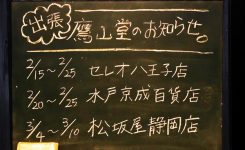 出張 鷹山堂のお知らせ。
2/15〜2/25 セレオ八王子店
2/20〜2/25 水戸京成百貨店
3/4〜3/10 松坂屋静岡店